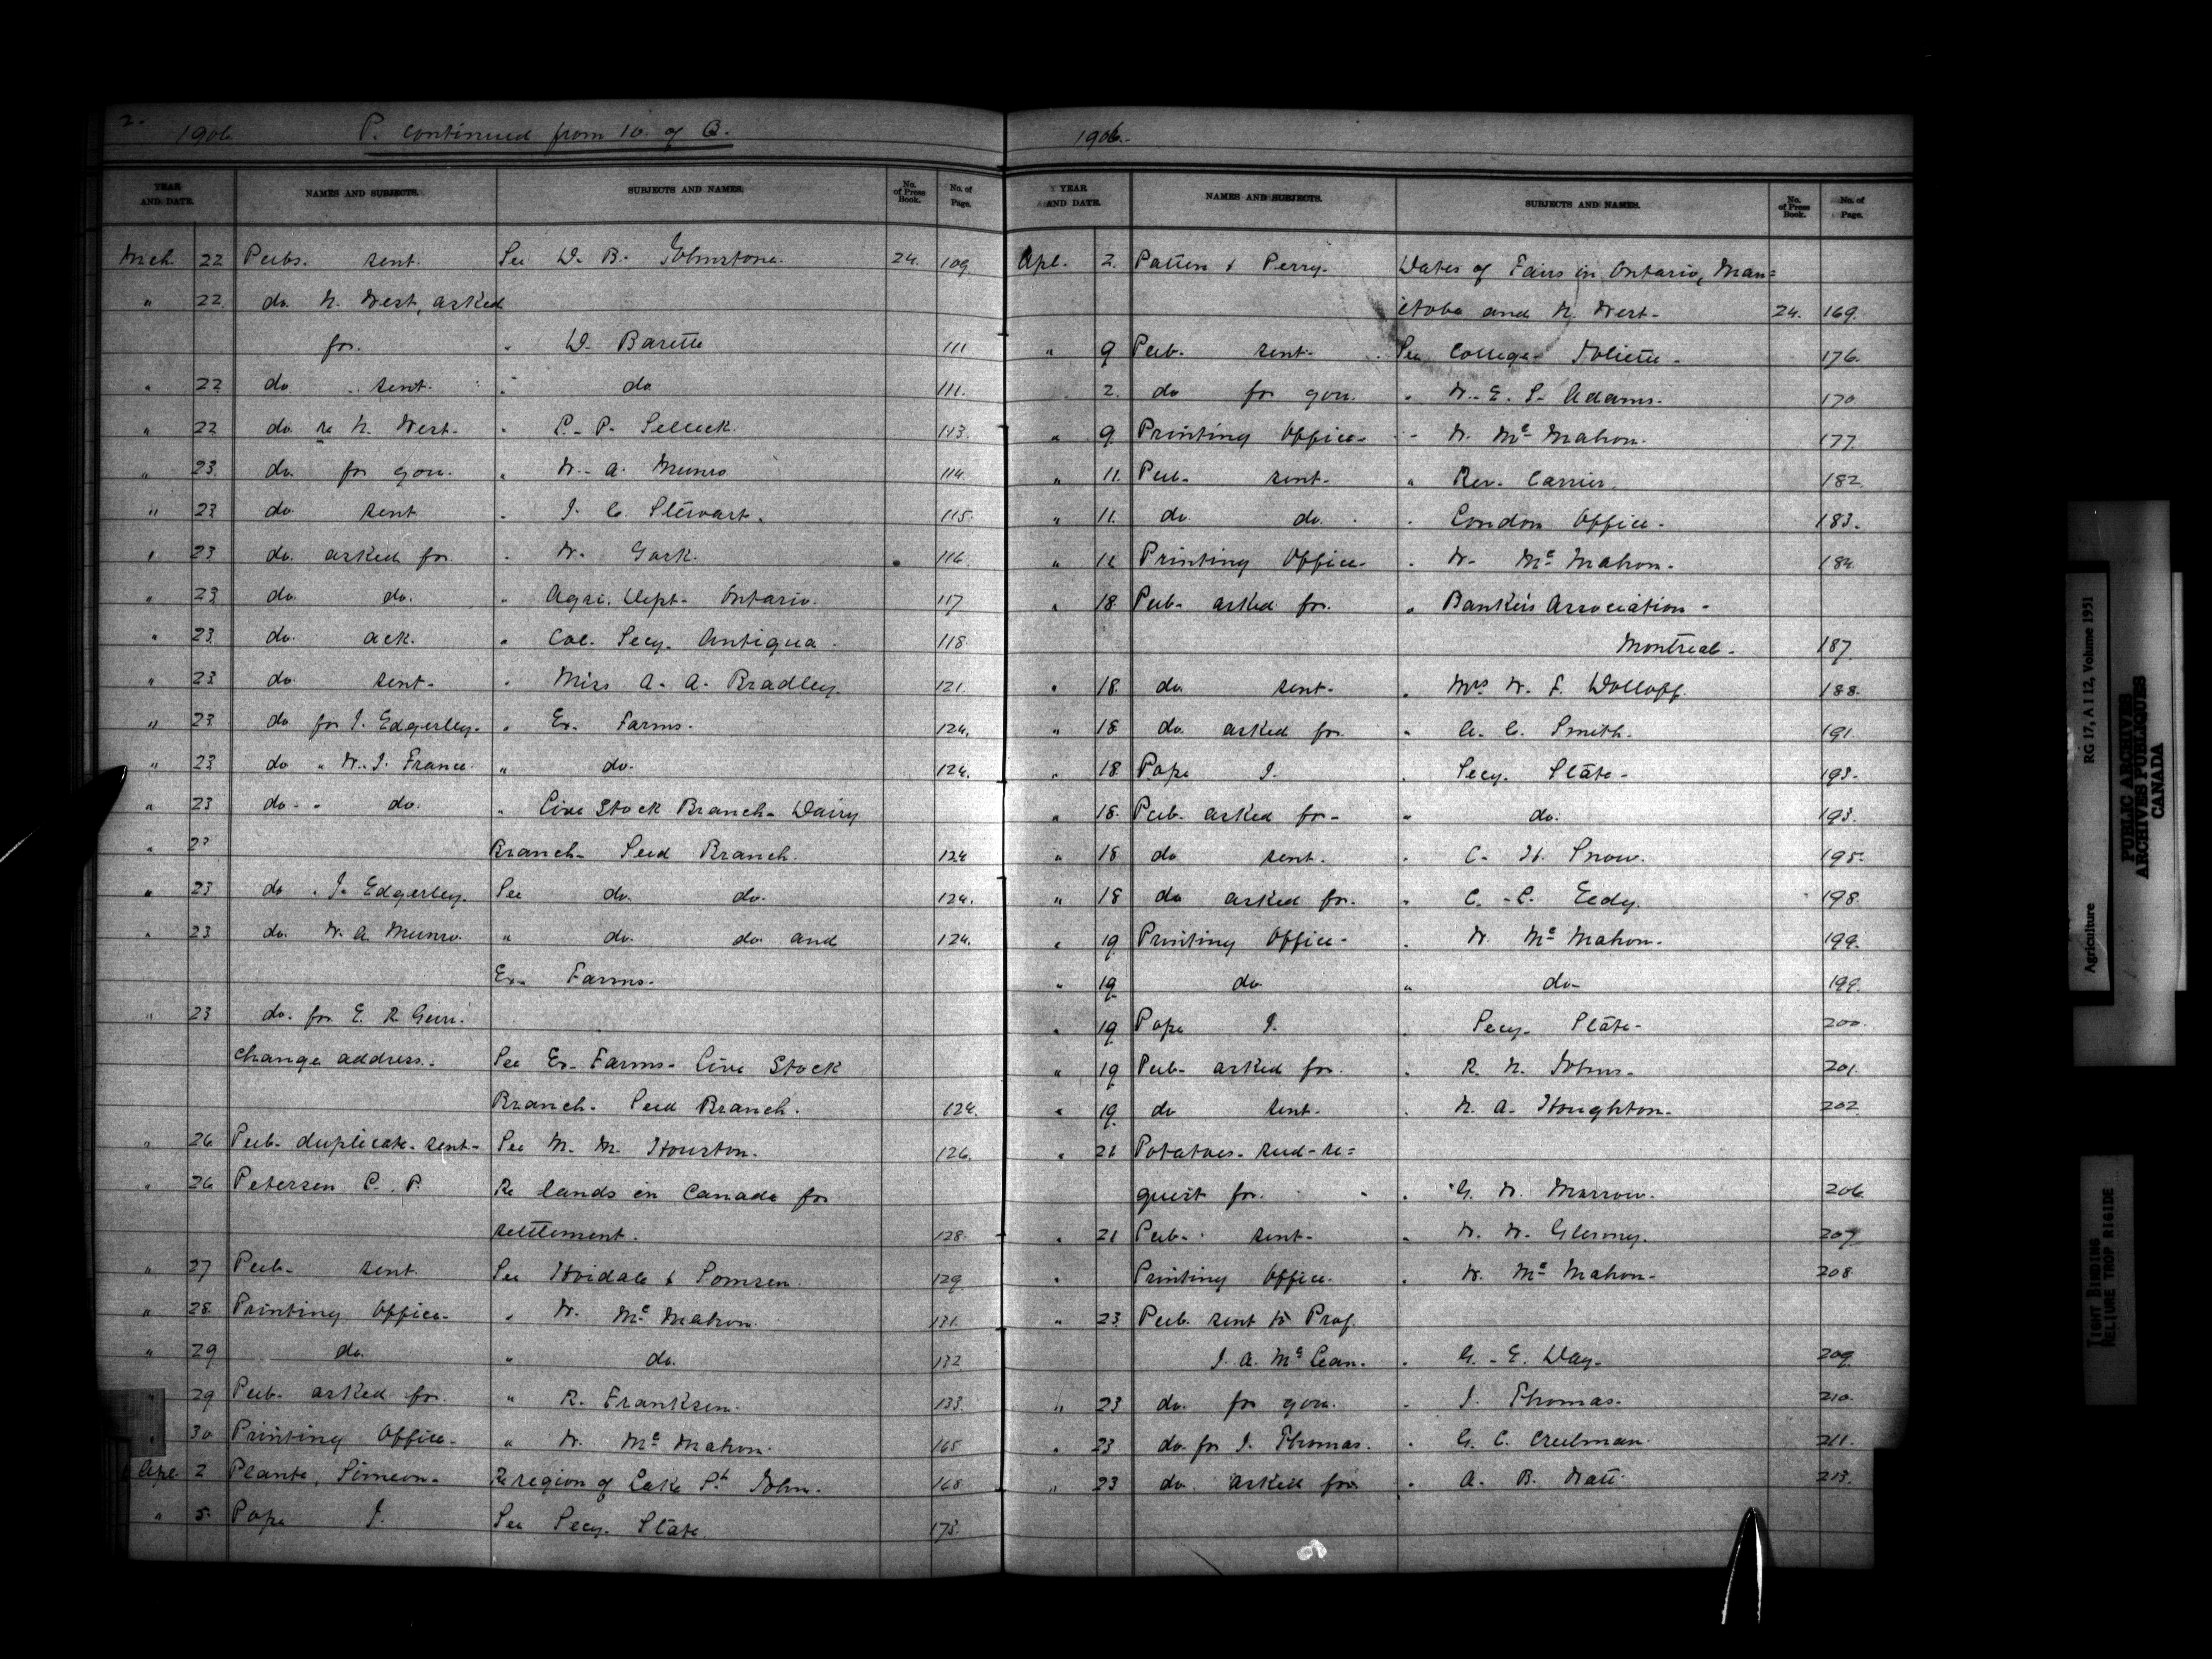 2.
1906. P. continued from 10. of Q.
YEAR AND DATE. NAMES AND SUBJECTS. SUBJECTS AND NAMES. No. of Press Book. No. of Page.
Mch. 22 Pubs. sent. See D. B. Johnstone. 24. 109
" 22 do. N. West, asked
for. " D. Barette 111
" 22 do. sent. " do 111.
" 22 do. re N. West. " P. P. Selleck. 113.
" 23. do. for gov. " W. A. Munro 114.
" 23 do. sent " J. C. Stewart. 115.
" 23 do. asked for. " W. Gark. 116.
" 23 do. do. " Agri. Dept. Ontario. 117
" 23. do. ack. " Col. Secy. Antigua. 118.
" 23 do. sent. " Miss A. A. Bradley. 121.
" 23 do. for J. Edgerley. " Ex. Farms. 124.
" 23 do " W. J. France. " do. 124.
" 23 do. " do. " Live Stock Branch. Dairy
" 23 Branch. Seed Branch. 124
" 23 do " J. Edgerley. See do. do. 124.
" 23 do. W. A. Munro. " do. do. and 124.
Ex. Farms.
" 23 do. for E. R.
change address. See Ex. Farms. Live Stock
Branch. Seed Branch. 124.
" 26 Pub. duplicate. sent. See M. M. Houston. 126.
" 26 Petersen C. P. Re lands in Canada for
settlement. 128.
" 27 Pub. sent. See Hvidale & Somsen. 129
" 28 Printing Office. " W. McMahon. 131.
" 29 do. " do. 132
" 29 Pub. asked for. " R. Franksen. 133.
" 30 Printing Office. " W. McMahon. 165
Apl. 2 Plante, Simeon. Re region of Lake St John. 168
" 5. Pope J. See Secy. State. 173.
1906.
YEAR AND DATE. NAMES AND SUBJECTS. SUBJECTS AND NAMES. No. of Press Book. No. of Page.
Apl. 2. Patten & Perry. Dates of Fairs in Ontario, Man=
itoba and N. West. 24. 169.
" 9 Pub. sent. See College Joliette. 176.
2. do for gov. " W. E. S. Adams. 170
" 9. Printing Office. " W. McMahon. 177.
" 11. Pub. sent. " Rev. Carrier. 182.
" 11. do. do. " London Office. 183.
" 12 Printing Office. " W. McMahon. 184
" 18. Pub. asked for. " Banker's Association.
Montreal. 187.
" 18. do. sent. " Mrs W. F. Wolloff. 188.
" 18 do. asked for. " C. C. Smith. 191.
" 18. Pope J. " Secy. State. 193.
" 18. Pub. asked for. " do. 193.
" 18 do sent. " C. H. Snow. 195.
" 18 do asked for. " C. C. Eedy. 198.
" 19 Printing Office. " W. McMahon. 199.
" 19 do " do 199.
" 19 Pope J. " Secy. State. 200.
" 19 Pub. asked for. " R. N. Johns. 201.
" 19. do sent. " N. A. Houghton. 202
" 21 Potatoes. seed-re=
quest for. " G. W. Marrow. 206
" 21 Pub. sent. " W. W. Glenny. 207
" Printing Office. " W. McMahon. 208
" 23. Pub. sent to Prof.
J. A. McLean. " G. E. Day. 209
" 23 do. for gov. " J. Thomas. 210.
" 23 do. for J. Thomas. " G. C. Creelman. 211.
" 23 do. asked for " A. B. Watt. 213.
Agriculture RG 17, A I 12, Volume 1951
PUBLIC ARCHIVES
ARCHIVES PUBLIQUES
CANADA
TIGHT BINDING
RELIURE TROP RIGIDE